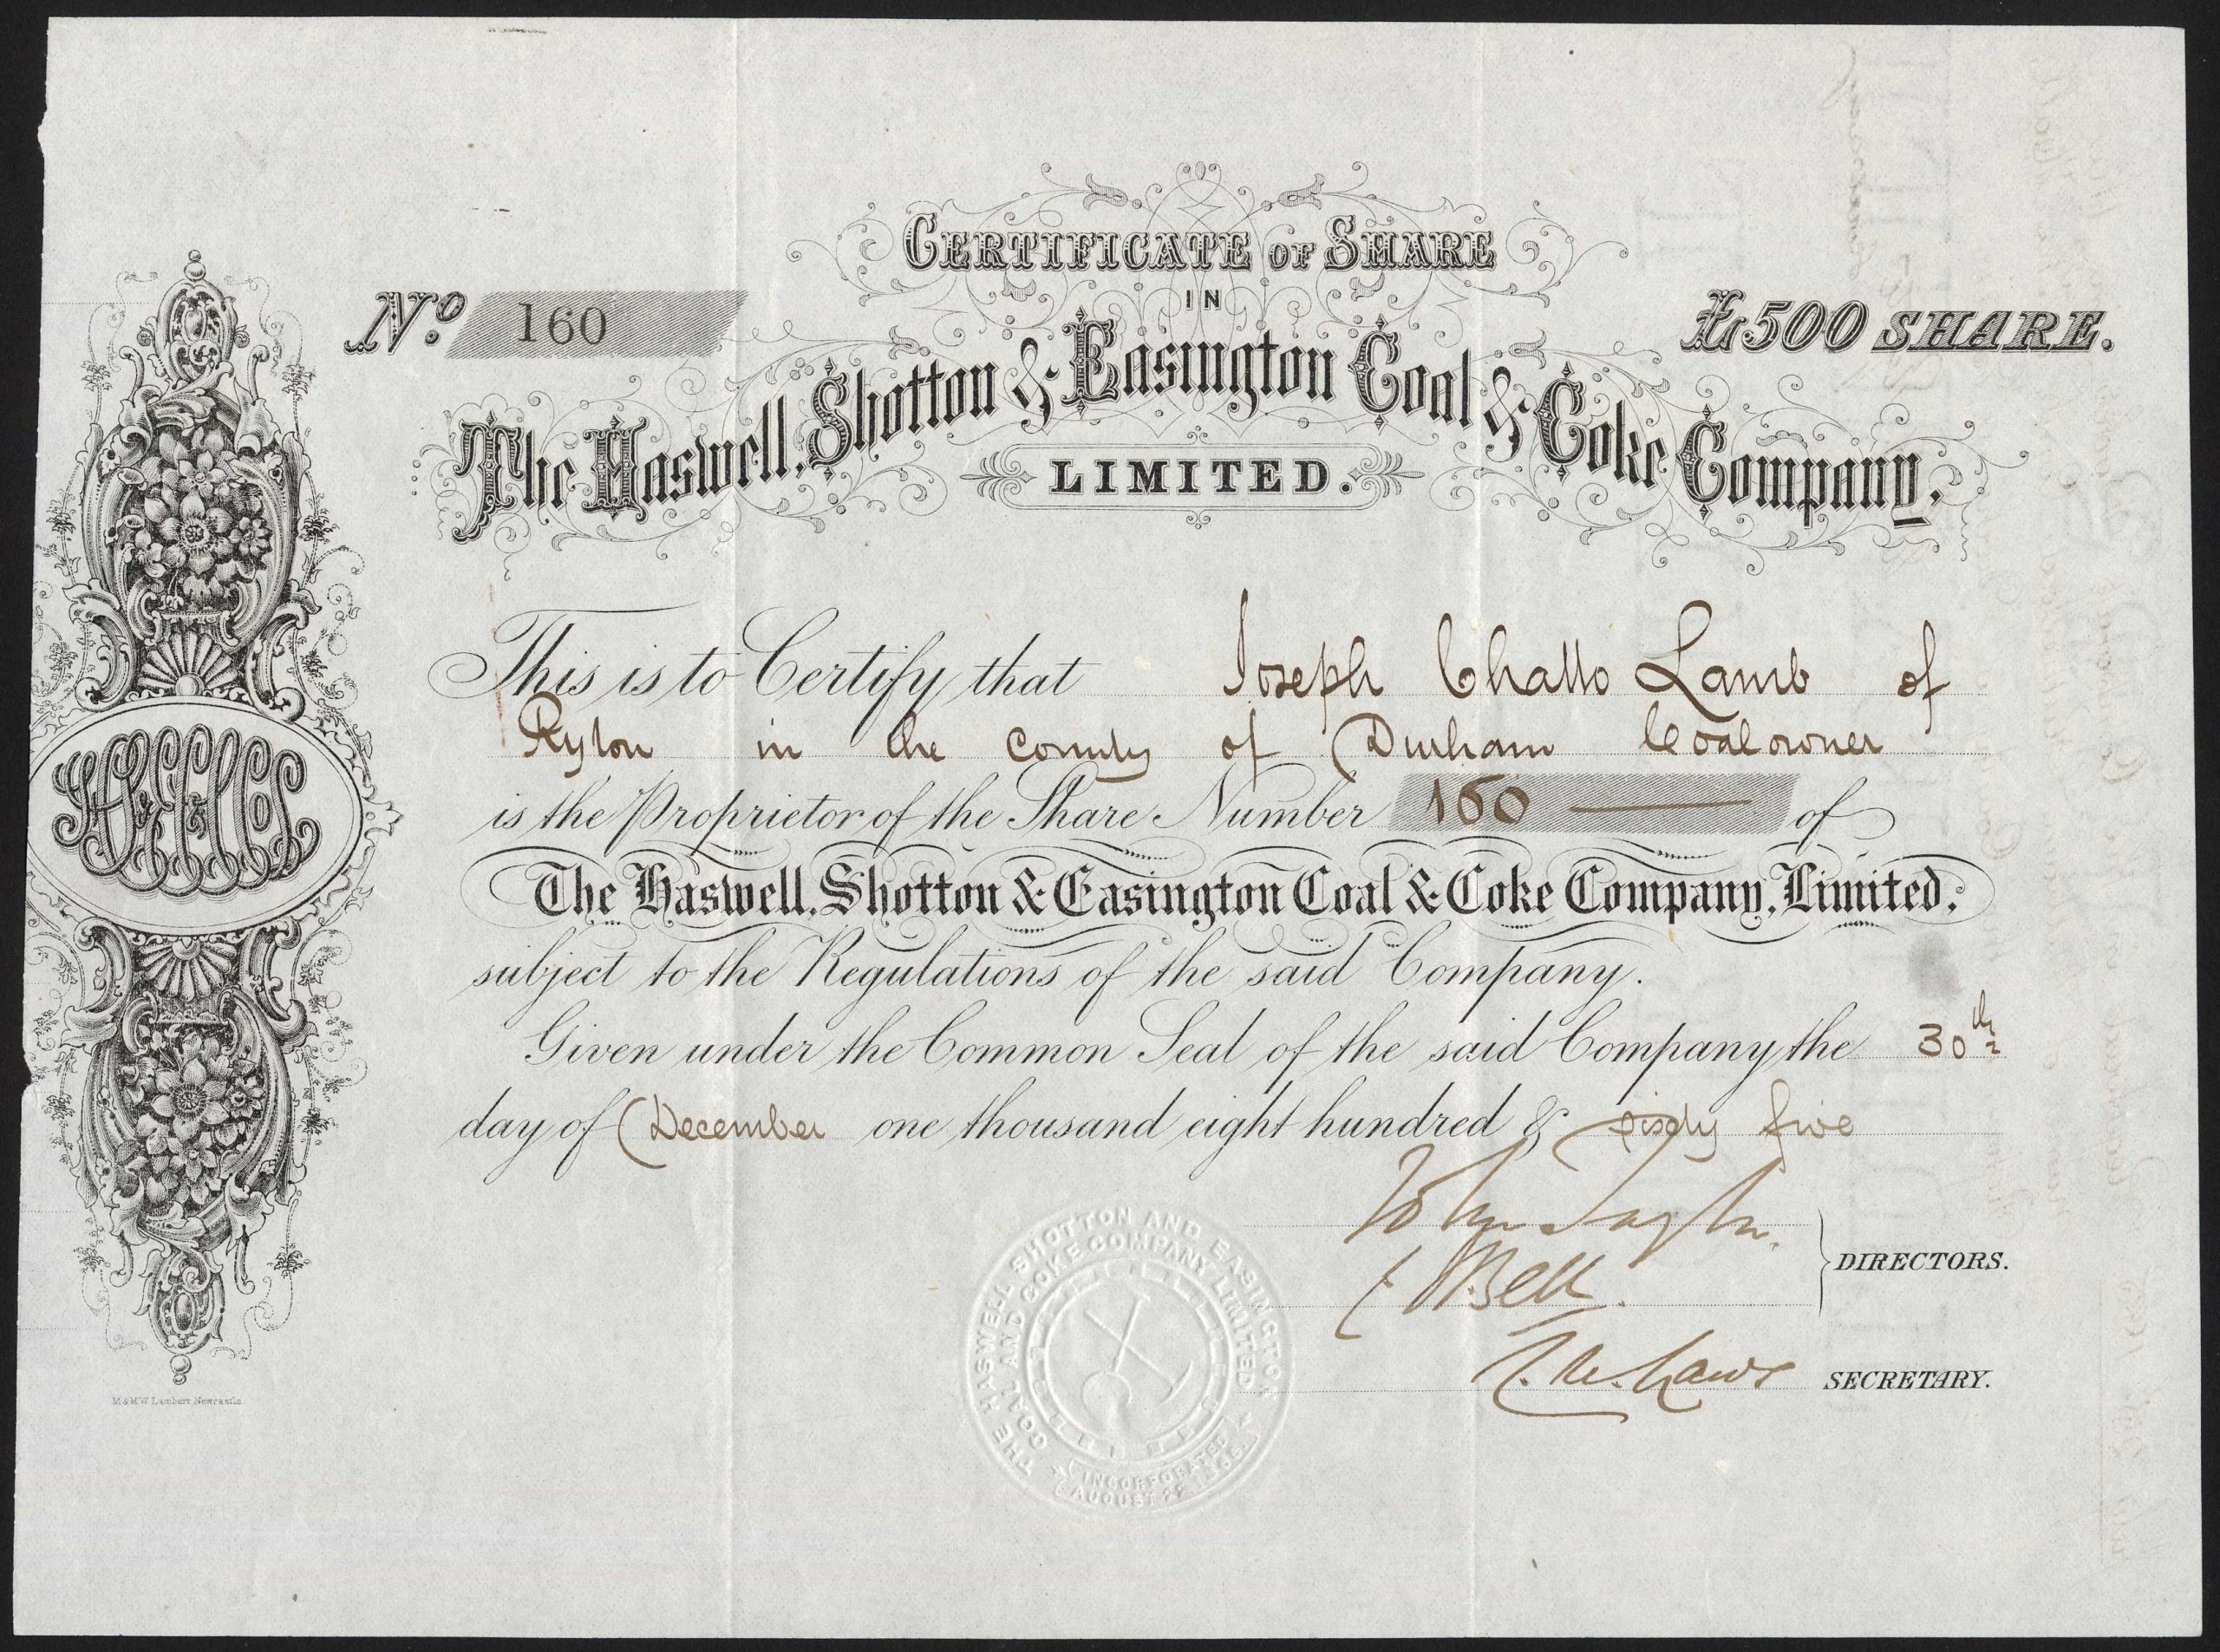 CERTIFICATE OF SHARE
IN
No. 160
£500 SHARE.
The Haswell, Shotton & Easington Coal & Coke Company,
LIMITED.
This is to Certify that Joseph Chatto Lamb of
Ryton in the county of Durham Coalowner
is the Proprietor of the Share Number 160 of
The Haswell, Shotton & Easington Coal & Coke Company, Limited,
subject to the Regulations of the said Company.
Given under the Common Seal of the said Company the 30th
day of December one thousand eight hundred & sixty five
John Taylor
Bell
DIRECTORS.
SECRETARY.
THE HASWELL SHOTTON AND EASINGTON
COAL AND COKE COMPANY LIMITED
INCORPORATED
AUGUST
M & M W Lambert Newcastle